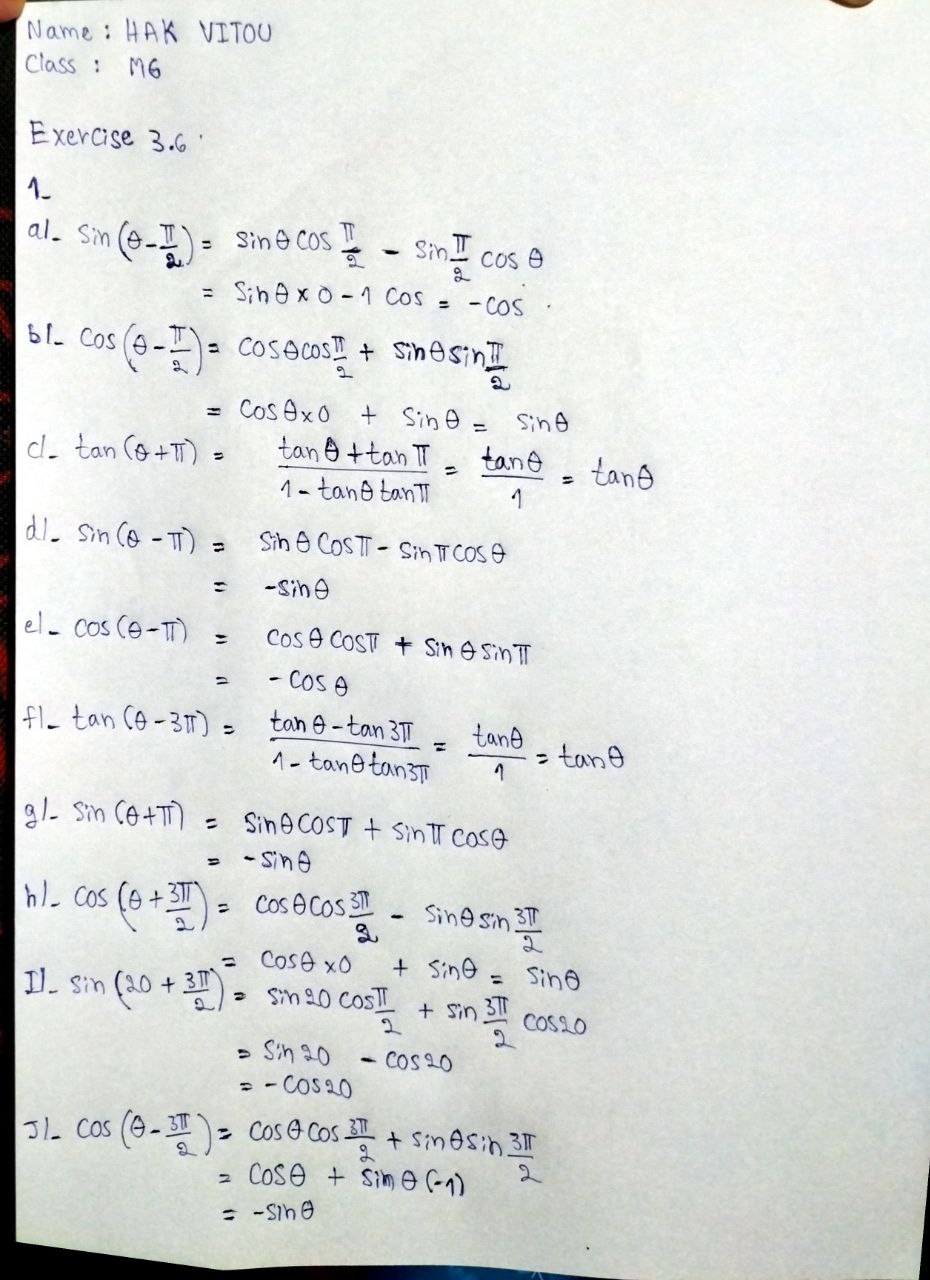 Name : HAK VITOU
Class : M6
Exercise 3.6
1-
a/- sin(θ-π/2) = sinθ cos π/2 - sin π/2 cos θ
= sinθ x 0 - 1 cos = -cos
b/- cos(θ-π/2) = cosθcosπ/2 + sinθsinπ/2
= cosθx0 + sinθ = sinθ
c/- tan(θ+π) = (tanθ+tanπ)/(1-tanθtanπ) = tanθ/1 = tanθ
d/- sin(θ-π) = sinθcosπ - sinπcosθ
= -sinθ
e/- cos(θ-π) = cosθcosπ + sinθsinπ
= -cosθ
f/- tan(θ-3π) = (tanθ-tan3π)/(1-tanθtan3π) = tanθ/1 = tanθ
g/- sin(θ+π) = sinθcosπ + sinπcosθ
= -sinθ
h/- cos(θ+3π/2) = cosθcos3π/2 - sinθsin3π/2
= cosθx0 + sinθ = sinθ
I/- sin(20+3π/2) = sin20cosπ/2 + sin3π/2 cos20
= sin20 - cos20
= -cos20
J/- cos(θ-3π/2) = cosθcos3π/2 + sinθsin3π/2
= cosθ + sinθ(-1)
= -sinθ